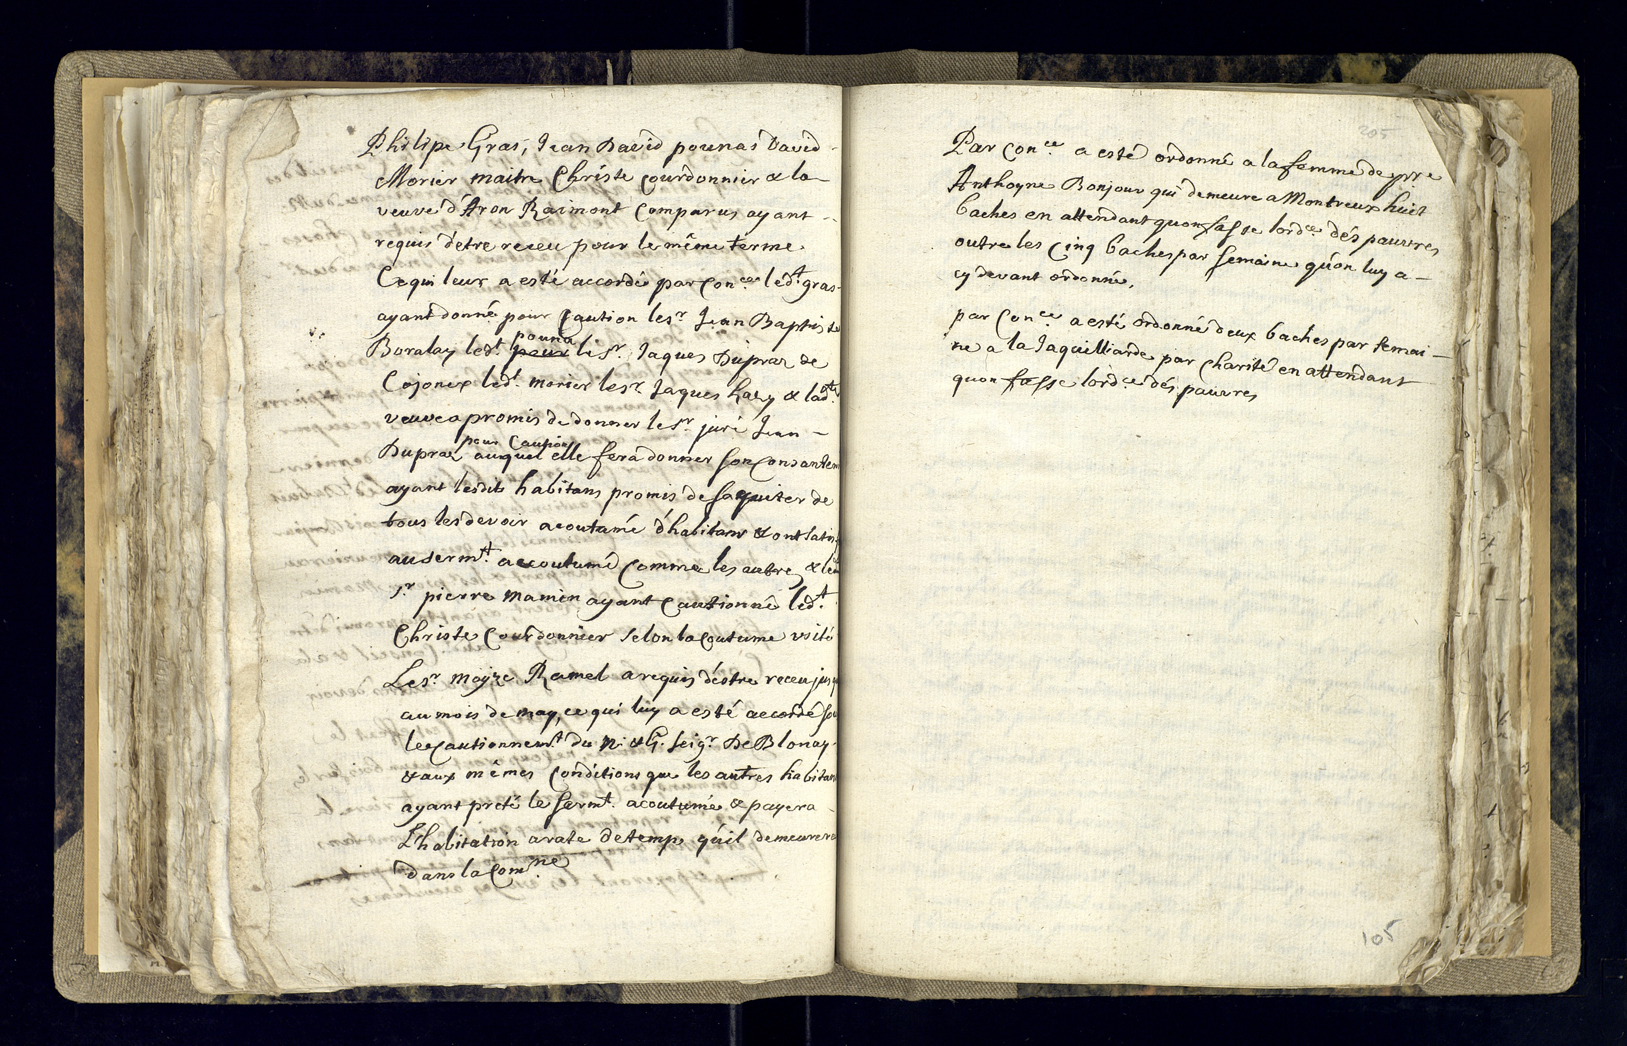 Philipe Gras, Jean David pounas David
Morier maitre Christe Courdonnier & la
veuve d'Aron Raimont Comparus ayant
requis d'etre receu pour le même terme
Ce qui leur a esté accordé par Con.ce led.t gras
ayant donné pour Caution le s.r Jean Baptiste
pouna
Boralay led.t le s.r Jaques Dupraz de
Cojonex led.t morier le s.r Jaques & lad.te
veuve a promis de donner le s.r juré Jean
pour Caution
Dupraz auquel elle fera donner son Consantem
ayant lesdits habitans promis de saquiter de
tous les devoir acoutumé d'habitans & ont satisf
au serm.t accoutumé Comme les autres &
s.r pierre mamin ayant Cautionné led.t
Christe Courdonnier selon la Coutume usité
Le s.r moyze Ramel a requis d'estre receu jusq
au mois de may, ce qui luy a esté accordé sou
le Cautionnem.t du N. & G. seig.r De Blonay
& aux mêmes Conditions que les autres habitans
ayant preté le serm.t acoutumé & payera
L'habitation a rate de temps qu'il demeurera
dans la Com.ne
205
Par Con.ce a esté ordonné a la femme de pre
Anthoyne Bonjour qui demeure a Montreux huit
baches en attendant quon fasse lord.ce des pauvres
outre les Cinq baches par semaine qu'on luy a
cy devant ordonné.
par Con.ce a esté ordonné deux baches par semai-
ne a la Jaquilliarde par Charité en attendant
quon fasse lord.ce des pauvres
105